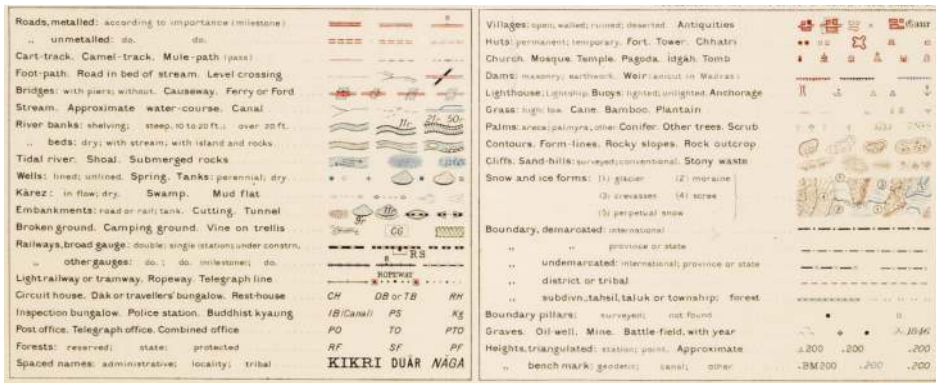 Roads, metalled: according to importance (milestone) 8
„ unmetalled: do. do.
Cart-track. Camel-track. Mule-path (pass)
Foot-path. Road in bed of stream. Level crossing
Bridges: with piers; without. Causeway. Ferry or Ford
Stream. Approximate water-course. Canal
River banks: shelving; steep, 10 to 20 ft.; over 20 ft. 11r 21r 50r
„ beds: dry; with stream; with island and rocks
Tidal river. Shoal. Submerged rocks
Wells: lined; unlined. Spring. Tanks: perennial; dry
Kārez: in flow; dry. Swamp. Mud flat
Embankments: road or rail; tank. Cutting. Tunnel 9r 11r
Broken ground. Camping ground. Vine on trellis CG
Railways, broad gauge: double; single (station); under constrn. RS
„ other gauges: do.; do. (milestone); do. 8
Light railway or tramway. Ropeway. Telegraph line ROPEWAY
Circuit house. Dāk or travellers' bungalow. Rest-house CH DB or TB RH
Inspection bungalow. Police station. Buddhist kyaung IB (Canal) PS Kg
Post office. Telegraph office. Combined office PO TO PTO
Forests: reserved; state; protected RF SF PF
Spaced names: administrative; locality; tribal KIKRI DUĀR NĀGA
Villages: open; walled; ruined; deserted. Antiquities Gaur
Huts: permanent; temporary. Fort. Tower. Chhatri
Church. Mosque. Temple. Pagoda. Idgāh. Tomb
Dams: masonry; earthwork. Weir (anicut in Madras)
Lighthouse; Lightship. Buoys: lighted; unlighted. Anchorage
Grass: high; low. Cane. Bamboo. Plantain
Palms: areca; palmyra; other. Conifer. Other trees. Scrub
Contours. Form-lines. Rocky slopes. Rock outcrop
Cliffs. Sand-hills: surveyed; conventional. Stony waste
Snow and ice forms: (1) glacier (2) moraine
(3) crevasses (4) scree
(5) perpetual snow
Boundary, demarcated: international
„ „ province or state
„ undemarcated: international; province or state
„ district or tribal
„ subdivn., tahsil, taluk or township; forest
Boundary pillars: surveyed; not found
Graves. Oil-well. Mine. Battle-field, with year 1846
Heights, triangulated: station; point. Approximate 200 .200 .200
„ bench mark: geodetic; canal; other .BM 200 .200 .200